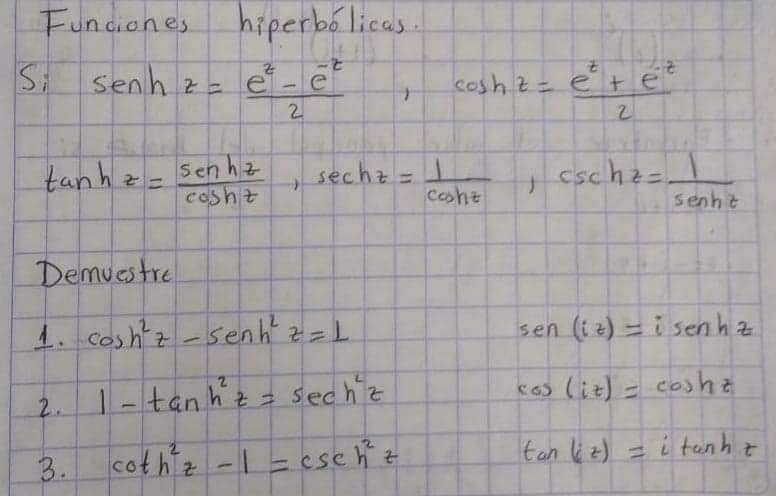 Funciones hiperbólicas.
Si senh z = (e^z - e^-z)/2 , cosh z = (e^z + e^-z)/2
tanh z = senhz/coshz , sech z = 1/coshz , csch z = 1/senhz
Demuestre
1. cosh²z - senh²z = 1 sen (iz) = i senh z
2. 1 - tanh²z = sech²z cos (iz) = cosh z
3. coth²z - 1 = csch²z tan (iz) = i tanh z